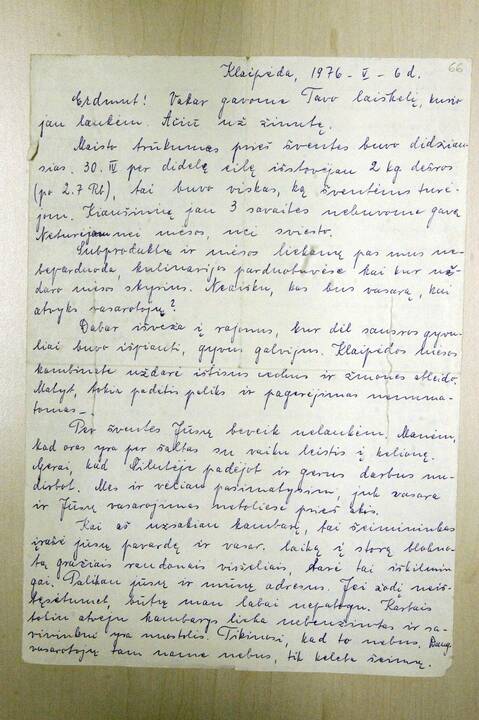 66
Klaipėda, 1976 - V - 6 d.
Erdmut! Vakar gavome Tavo laiškelį, kurio
jau laukėm. Ačiū už žinutę.
Maisto trūkumas prieš šventes buvo didžiau-
sias. 30. IV per didelę eilę išstovėjau 2 kg dešros
(po 2.7 Rb), tai buvo viskas, ką šventėms turė-
jom. Kiaušinių jau 3 savaites nebuvome gavę
Neturėjau nei mėsos, nei sviesto.
Subproduktų ir mėsos liekanų pas mus ne-
beparduoda, kulinarijos parduotuvėse kai kur už-
daro mėsos skyrius. Neaišku, kas bus vasarą, kai
atvyks vasarotojų?
Dabar išveža į rajonus, kur dėl sausros gyvu-
liai buvo išpiauti, gyvus galvijus. Klaipėdos mėsos
kombinate uždarė ištisus cechus ir žmones atleido.
Matyt, tokia padėtis paliks ir pagerėjimas nenuma-
tomas.
Per šventes Jūsų beveik nelaukėm. Manėm,
kad oras yra per šaltas su vaiku leistis į kelionę.
Gerai, kad Šilutėje padėjot ir gerus darbus nu-
dirbot. Mes ir vėliau pasimatysim, juk vasara
ir Jūsų vasarojimas netoliese prieš akis.
Kai aš užsakiau kambarį, tai šeimininkas
įrašė jūsų pavardę ir vasar. laiką į storą bloknо-
tą gražiais raudonais viršeliais, darė tai iškilmin-
gai. Palikau jūsų ir mūsų adresus. Jei žodį neiš-
tęsėtumet, būtų man labai nepatogu. Kartais
tokiu atveju kambarys lieka neužimtas ir sa-
vininkui yra nuostolis. Tikiuosi, kad to nebus. Daug
vasarotojų tam name nebus, tik keleta šeimų.